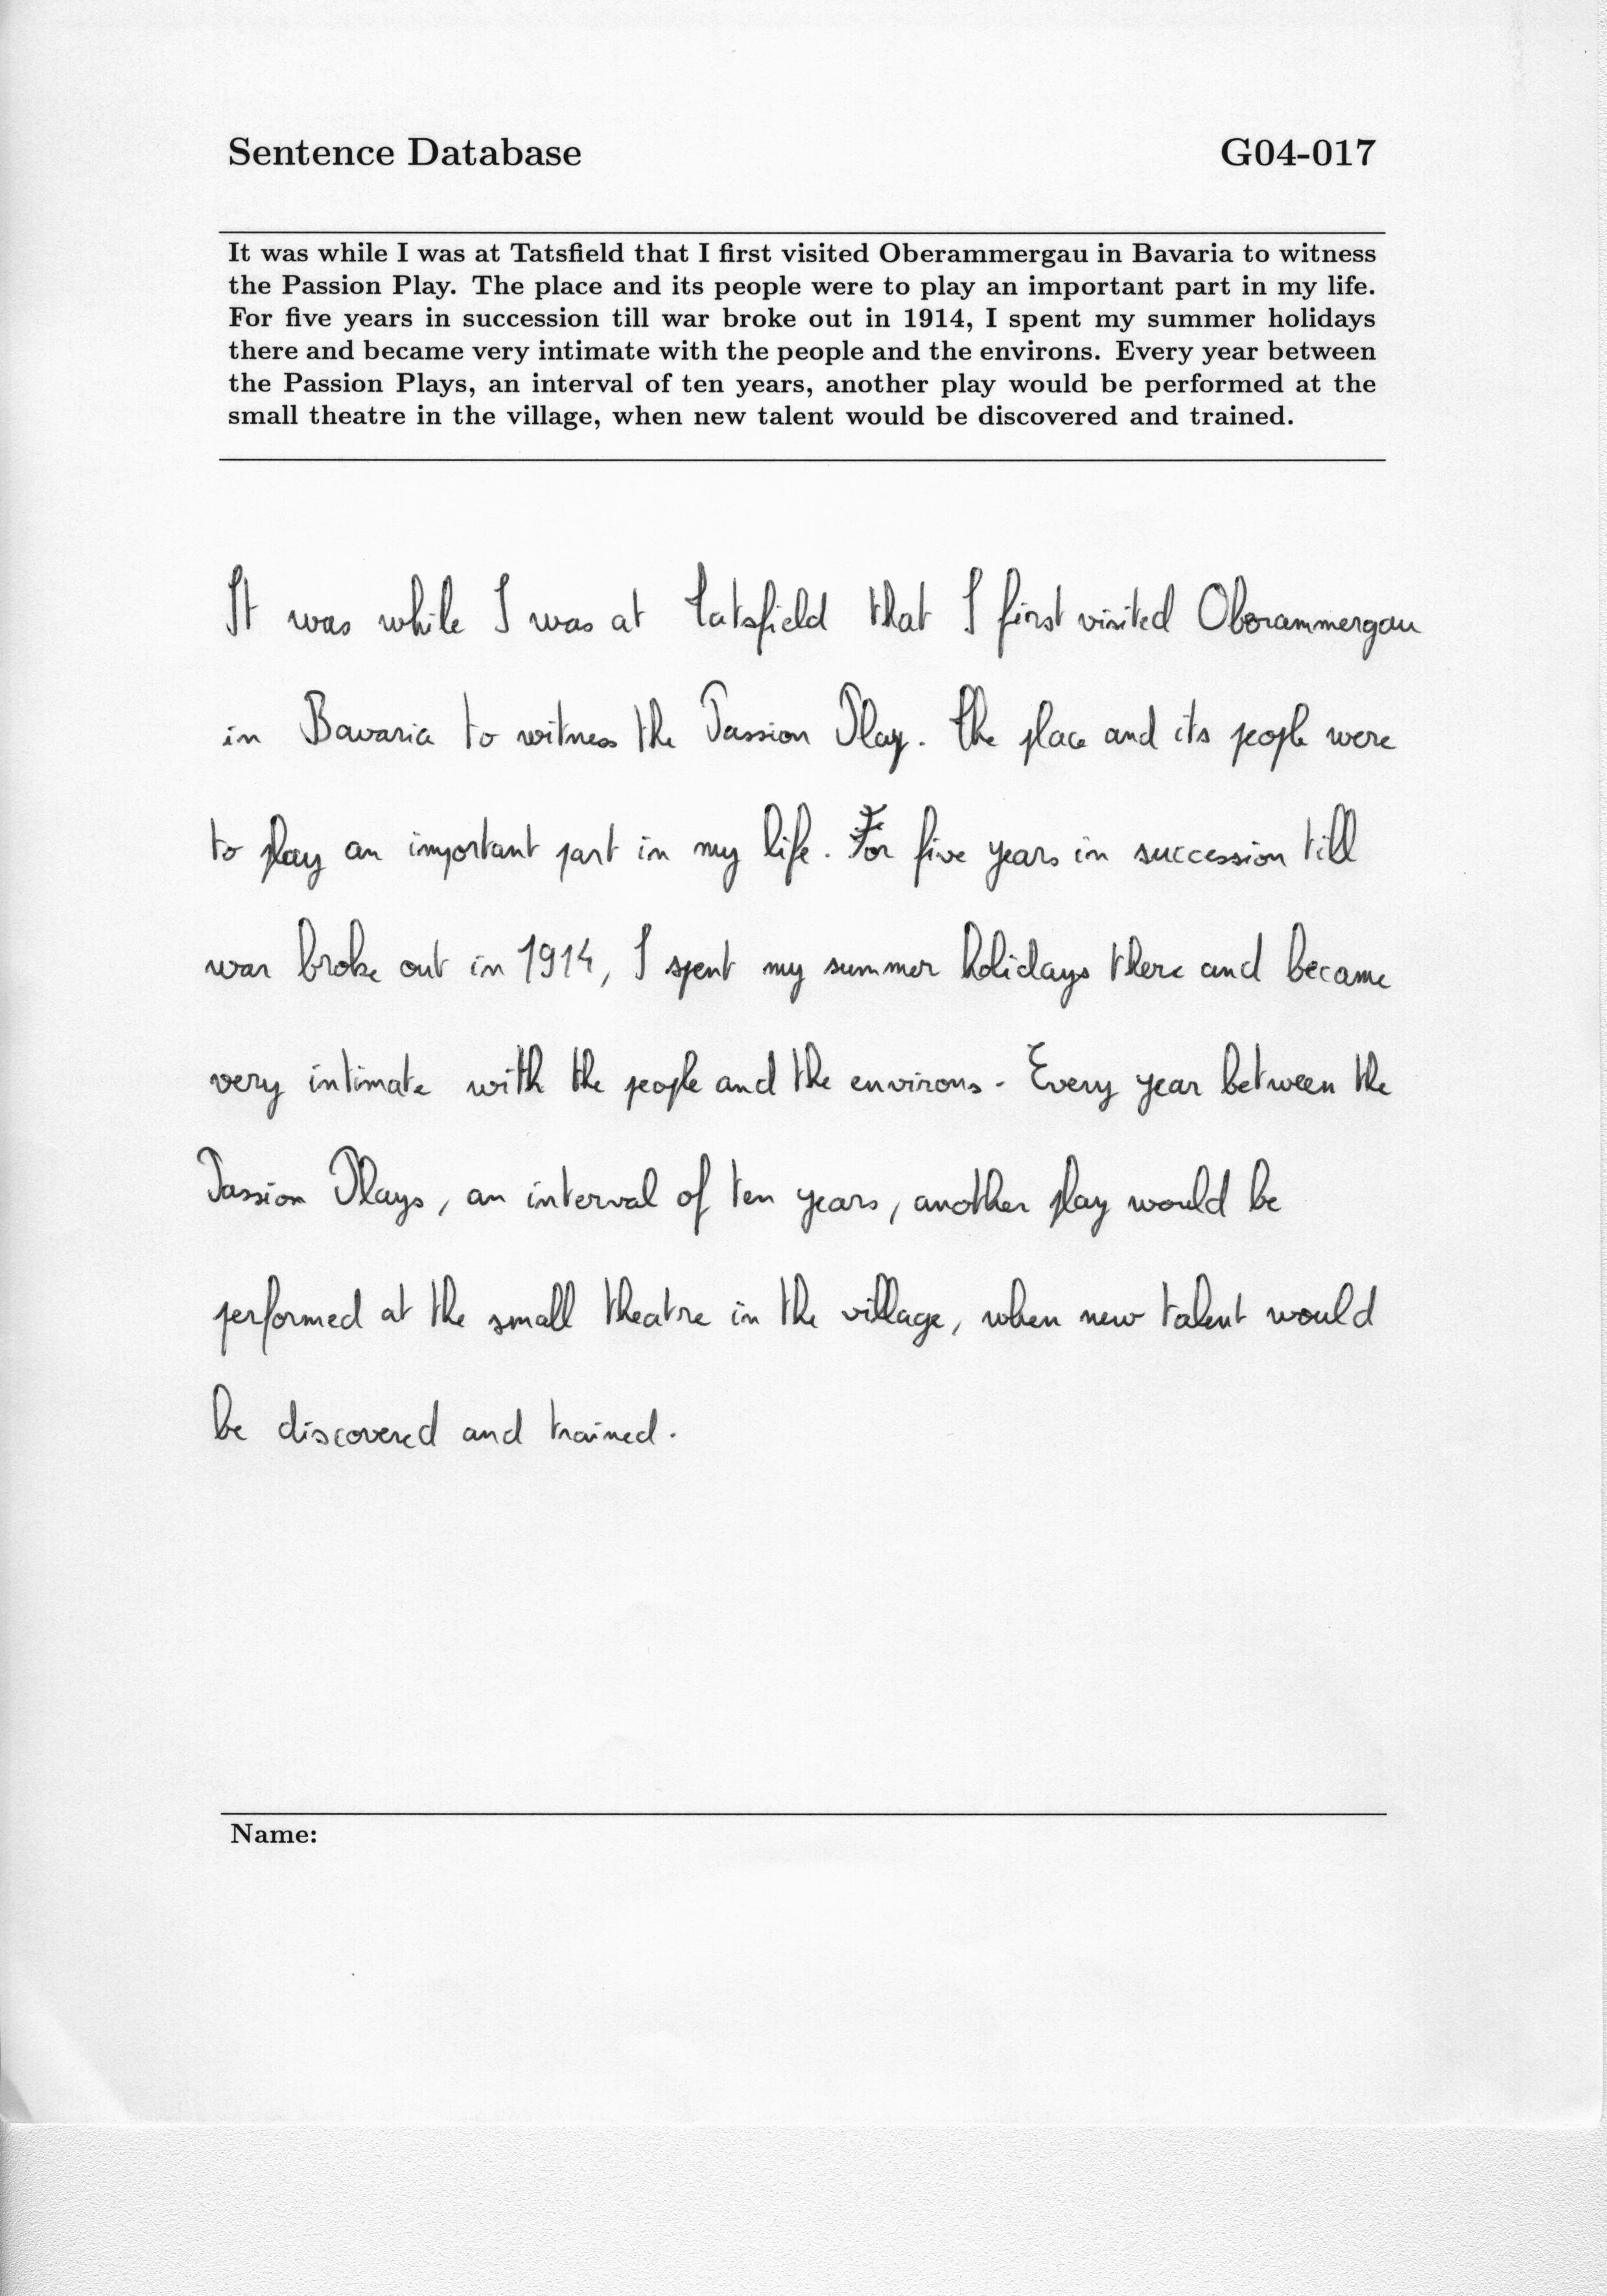 Sentence Database G04-017
It was while I was at Tatsfield that I first visited Oberammergau in Bavaria to witness
the Passion Play. The place and its people were to play an important part in my life.
For five years in succession till war broke out in 1914, I spent my summer holidays
there and became very intimate with the people and the environs. Every year between
the Passion Plays, an interval of ten years, another play would be performed at the
small theatre in the village, when new talent would be discovered and trained.
It was while I was at Tatsfield that I first visited Oberammergau
in Bavaria to witness the Passion Play. The place and its people were
to play an important part in my life. For five years in succession till
war broke out in 1914, I spent my summer holidays there and became
very intimate with the people and the environs. Every year between the
Passion Plays, an interval of ten years, another play would be
performed at the small theatre in the village, when new talent would
be discovered and trained.
Name: